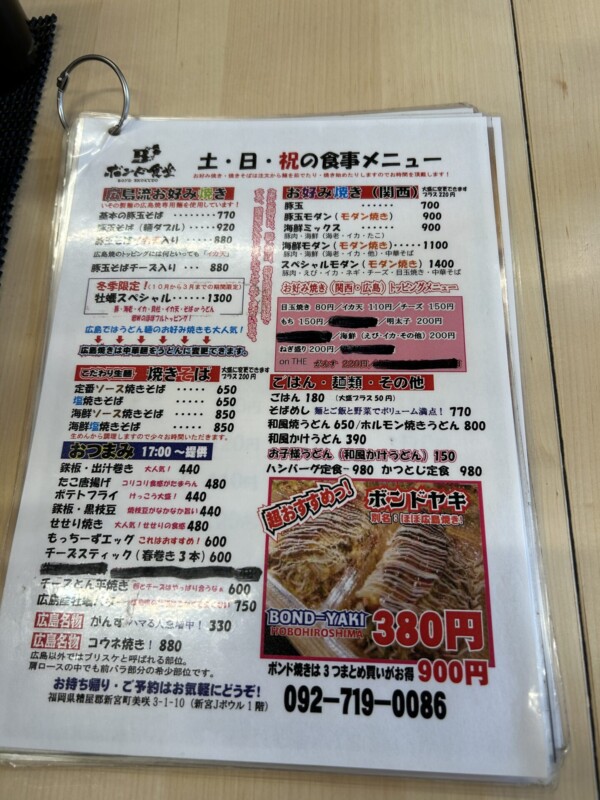 ボンド食堂
土・日・祝の食事メニュー
お好み焼き・焼きそばは注文から麺を茹でたり・焼き始めたりしますのでお時間を頂戴します！
広島流お好み焼き
いその製麺の広島焼専用麺を使用しています！
基本の豚玉そば ････････770
豚玉そば（麺ダブル）･････920
入り ････ 880
広島焼のトッピングには何といっても「イカ天」
豚玉そばチーズ入り ･･･ 880
冬季限定！（１０月から３月までの期間限定）
牡蠣スペシャル ･･････1300
豚・海老・イカ・貝柱・イカ天・そばorうどん
広島ではうどん麺のお好み焼きも大人気！
広島焼きは中華麺をうどんに変更できます。
こだわり生麺 焼きそば 大盛に変更できます プラス200円
定番ソース焼きそば ･････ 650
塩焼きそば ･････････ 650
海鮮ソース焼きそば ･････ 850
海鮮塩焼きそば ･･･････ 850
生めんから調理しますので少々お時間いただきます。
おつまみ 17:00 〜提供
鉄板・出汁巻き 大人気！ 440
たこ唐揚げ コリコリ食感がたまらん 480
ポテトフライ けっこう大盛！ 440
鉄板・黒枝豆 焼枝豆がなかなか旨い 440
せせり焼き 大人気！せせりの食感 480
もっちーずエッグ これはおすすめ！ 600
チーズスティック（春巻き３本）600
チーズとん平焼き 豚とチーズはやっぱり合うなぁ 600
広島産牡蠣バター 750
広島名物 がんす ハマる人急増中！ 330
広島名物 コウネ焼き！ 880
広島以外ではブリスケと呼ばれる部位。
肩ロースの中でも前バラ部分の希少部位です。
お好み焼き（関西） 大盛に変更できます プラス220円
豚玉 ･･････････ 700
豚玉モダン（モダン焼き） 900
海鮮ミックス ･･････ 900
豚肉・海鮮（海老・イカ・たこ）
海鮮モダン（モダン焼き）･････1100
豚肉・海鮮（海老・イカ・他）・中華そば
スペシャルモダン（モダン焼き）1400
豚肉・えび・イカ・ネギ・チーズ・目玉焼き・中華そば
お好み焼き（関西・広島）トッピングメニュー
目玉焼き 80円/イカ天 110円/チーズ 150円
もち 150円/ /明太子 200円
/海鮮（エビ・イカ・その他）200円
ねぎ盛り 200円/
on THE
ごはん・麺類・その他
ごはん 180 （大盛プラス50円）
そばめし 麺とご飯と野菜でボリューム満点！ 770
和風焼うどん 650/ホルモン焼きうどん 800
和風かけうどん 390
お子様うどん（和風かけうどん）150
ハンバーグ定食 980 かつとじ定食 980
超おすすめっ！
ボンドヤキ
別名：ほぼ広島焼き
BOND-YAKI
HOBOHIROSHIMA
380円
ボンド焼きは３つまとめ買いがお得 900円
お持ち帰り・ご予約はお気軽にどうぞ！
福岡県糟屋郡新宮町美咲 3-1-10（新宮Jボウル１階）
092-719-0086